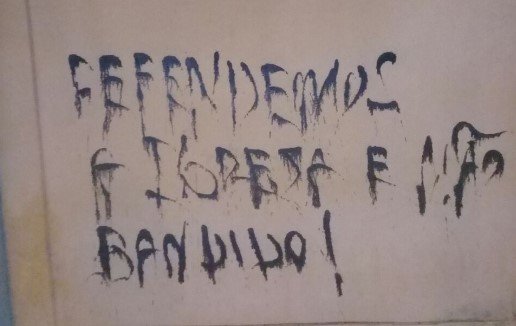 DEFENDEMOS
A IGREJA E NÃO
BANDIDO!